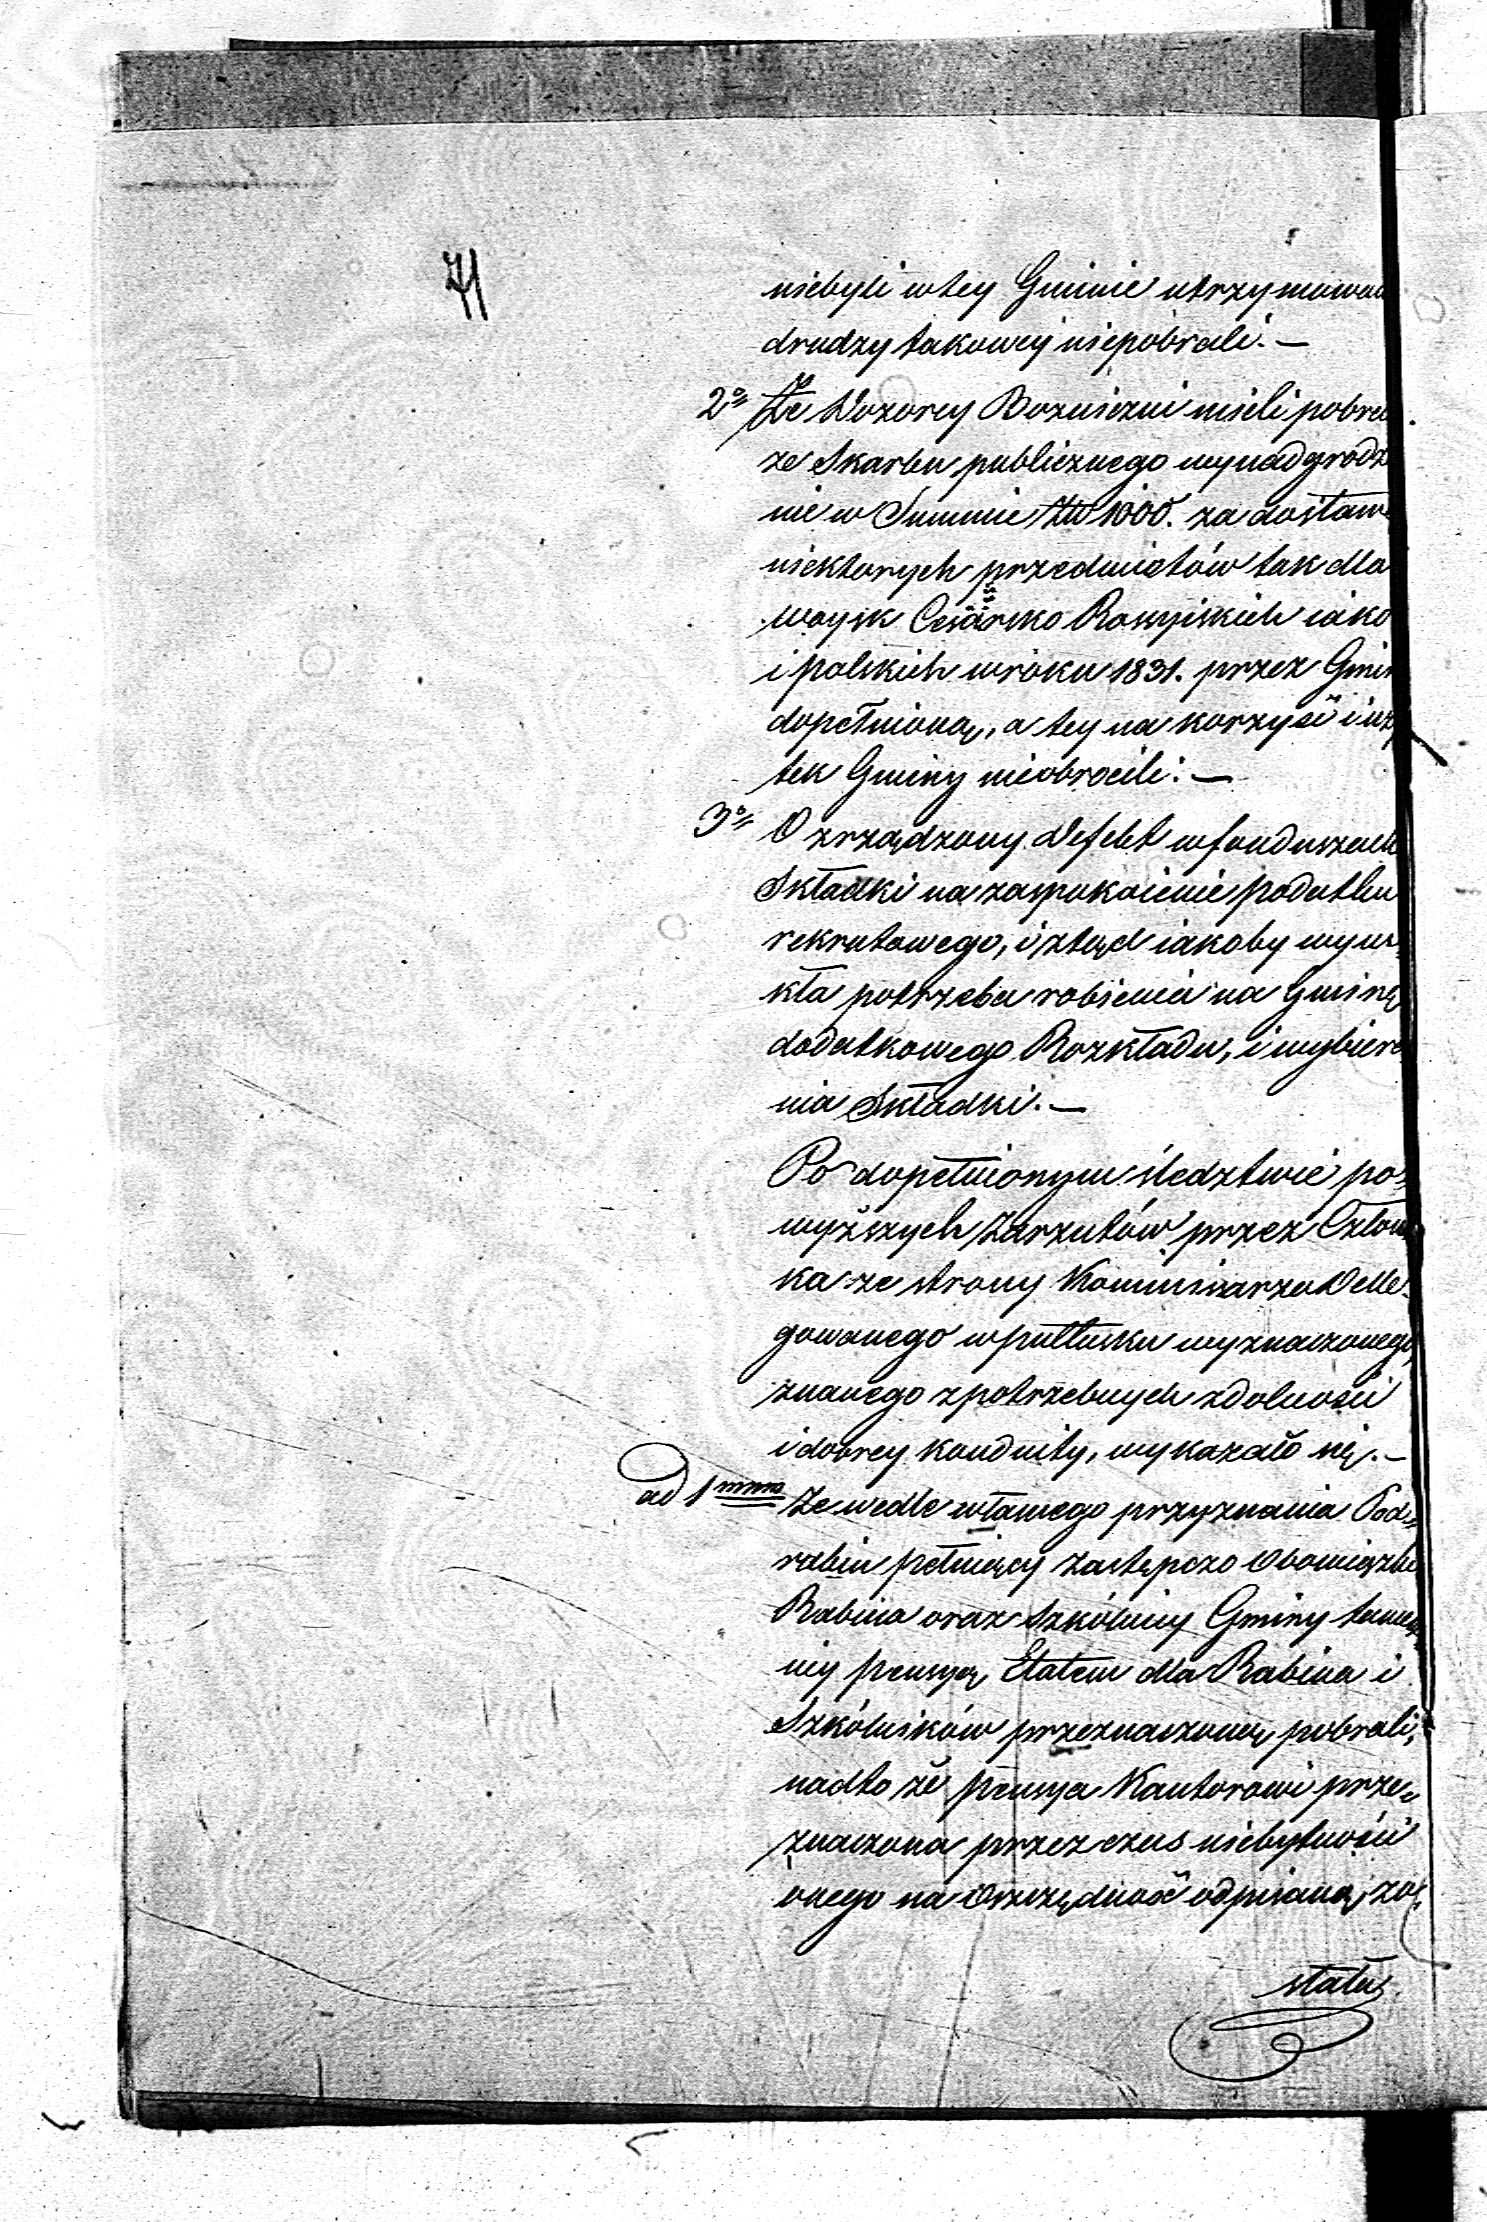 71
niebyli w tey Gminie utrzymowa
drudzy takowey niepobrali. —
2o Że Dozorcy Bożniczni mieli pobra
ze Skarbu publicznego wynadgrodz
nie w Summie Złt 1000. za dostaw
niektorych przedmiotów tak dla
woysk Cesarsko Rossyiskich iako
i polskich w roku 1831. przez Gmin
dopełnioną, a tey na korzyść i uży
tek Gminy nieobrocili. —
3o O zrządzony Defekt w funduszach
Składki na zaspokoienie podatku
rekrutowego, i ztąd iakoby wyni-
kła potrzeba robienia na Gminę
dodatkowego Rozkładu, i wybiera
nia Składki. —
Po dopełnionym śledztwie po-
wyższych Zarzutów przez Człon
ka ze strony Kommissarza Delle-
gowanego w Pułtusku wyznaczonego,
znanego z potrzebnych zdolności
i dobrey konduity, wykazało się. —
ad 1mum Że wedle własnego przyznania Pod-
rabin pełniący zastępczo Obowiązki
Rabina oraz Szkólnicy Gminy tamey
ney pensyą Etatem dla Rabina i
Szkólników przeznaczoną pobrali,
nadto że pensya Kantorowi prze-
znaczona przez czas niebytności
onego na Oszczędność odpisaną zo-
stała